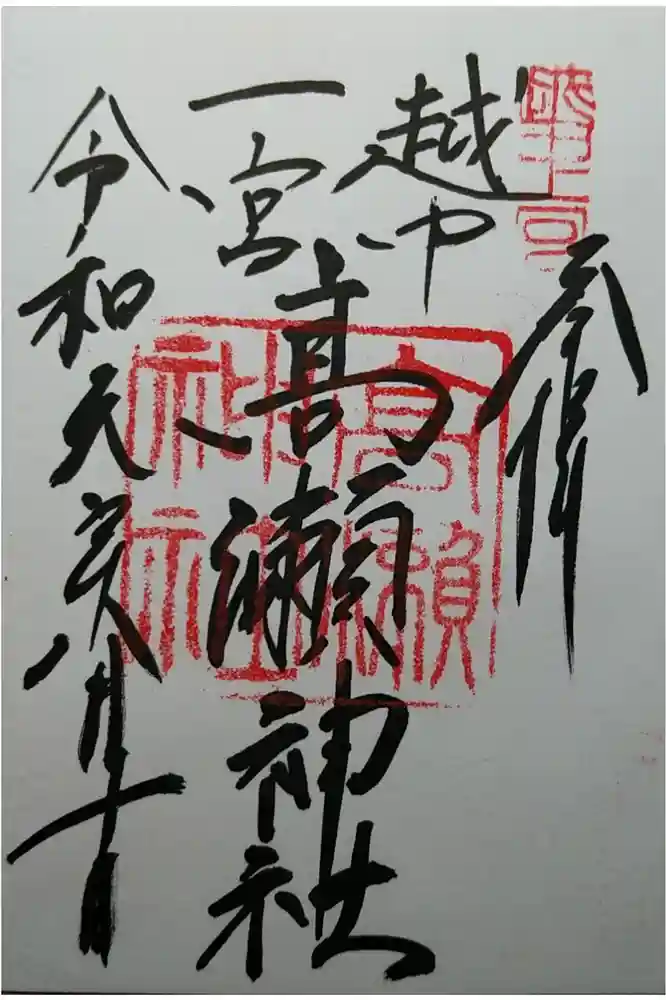 参拝
越中
一宮
高瀬神社
令和元亥八月十日
高瀬
神社